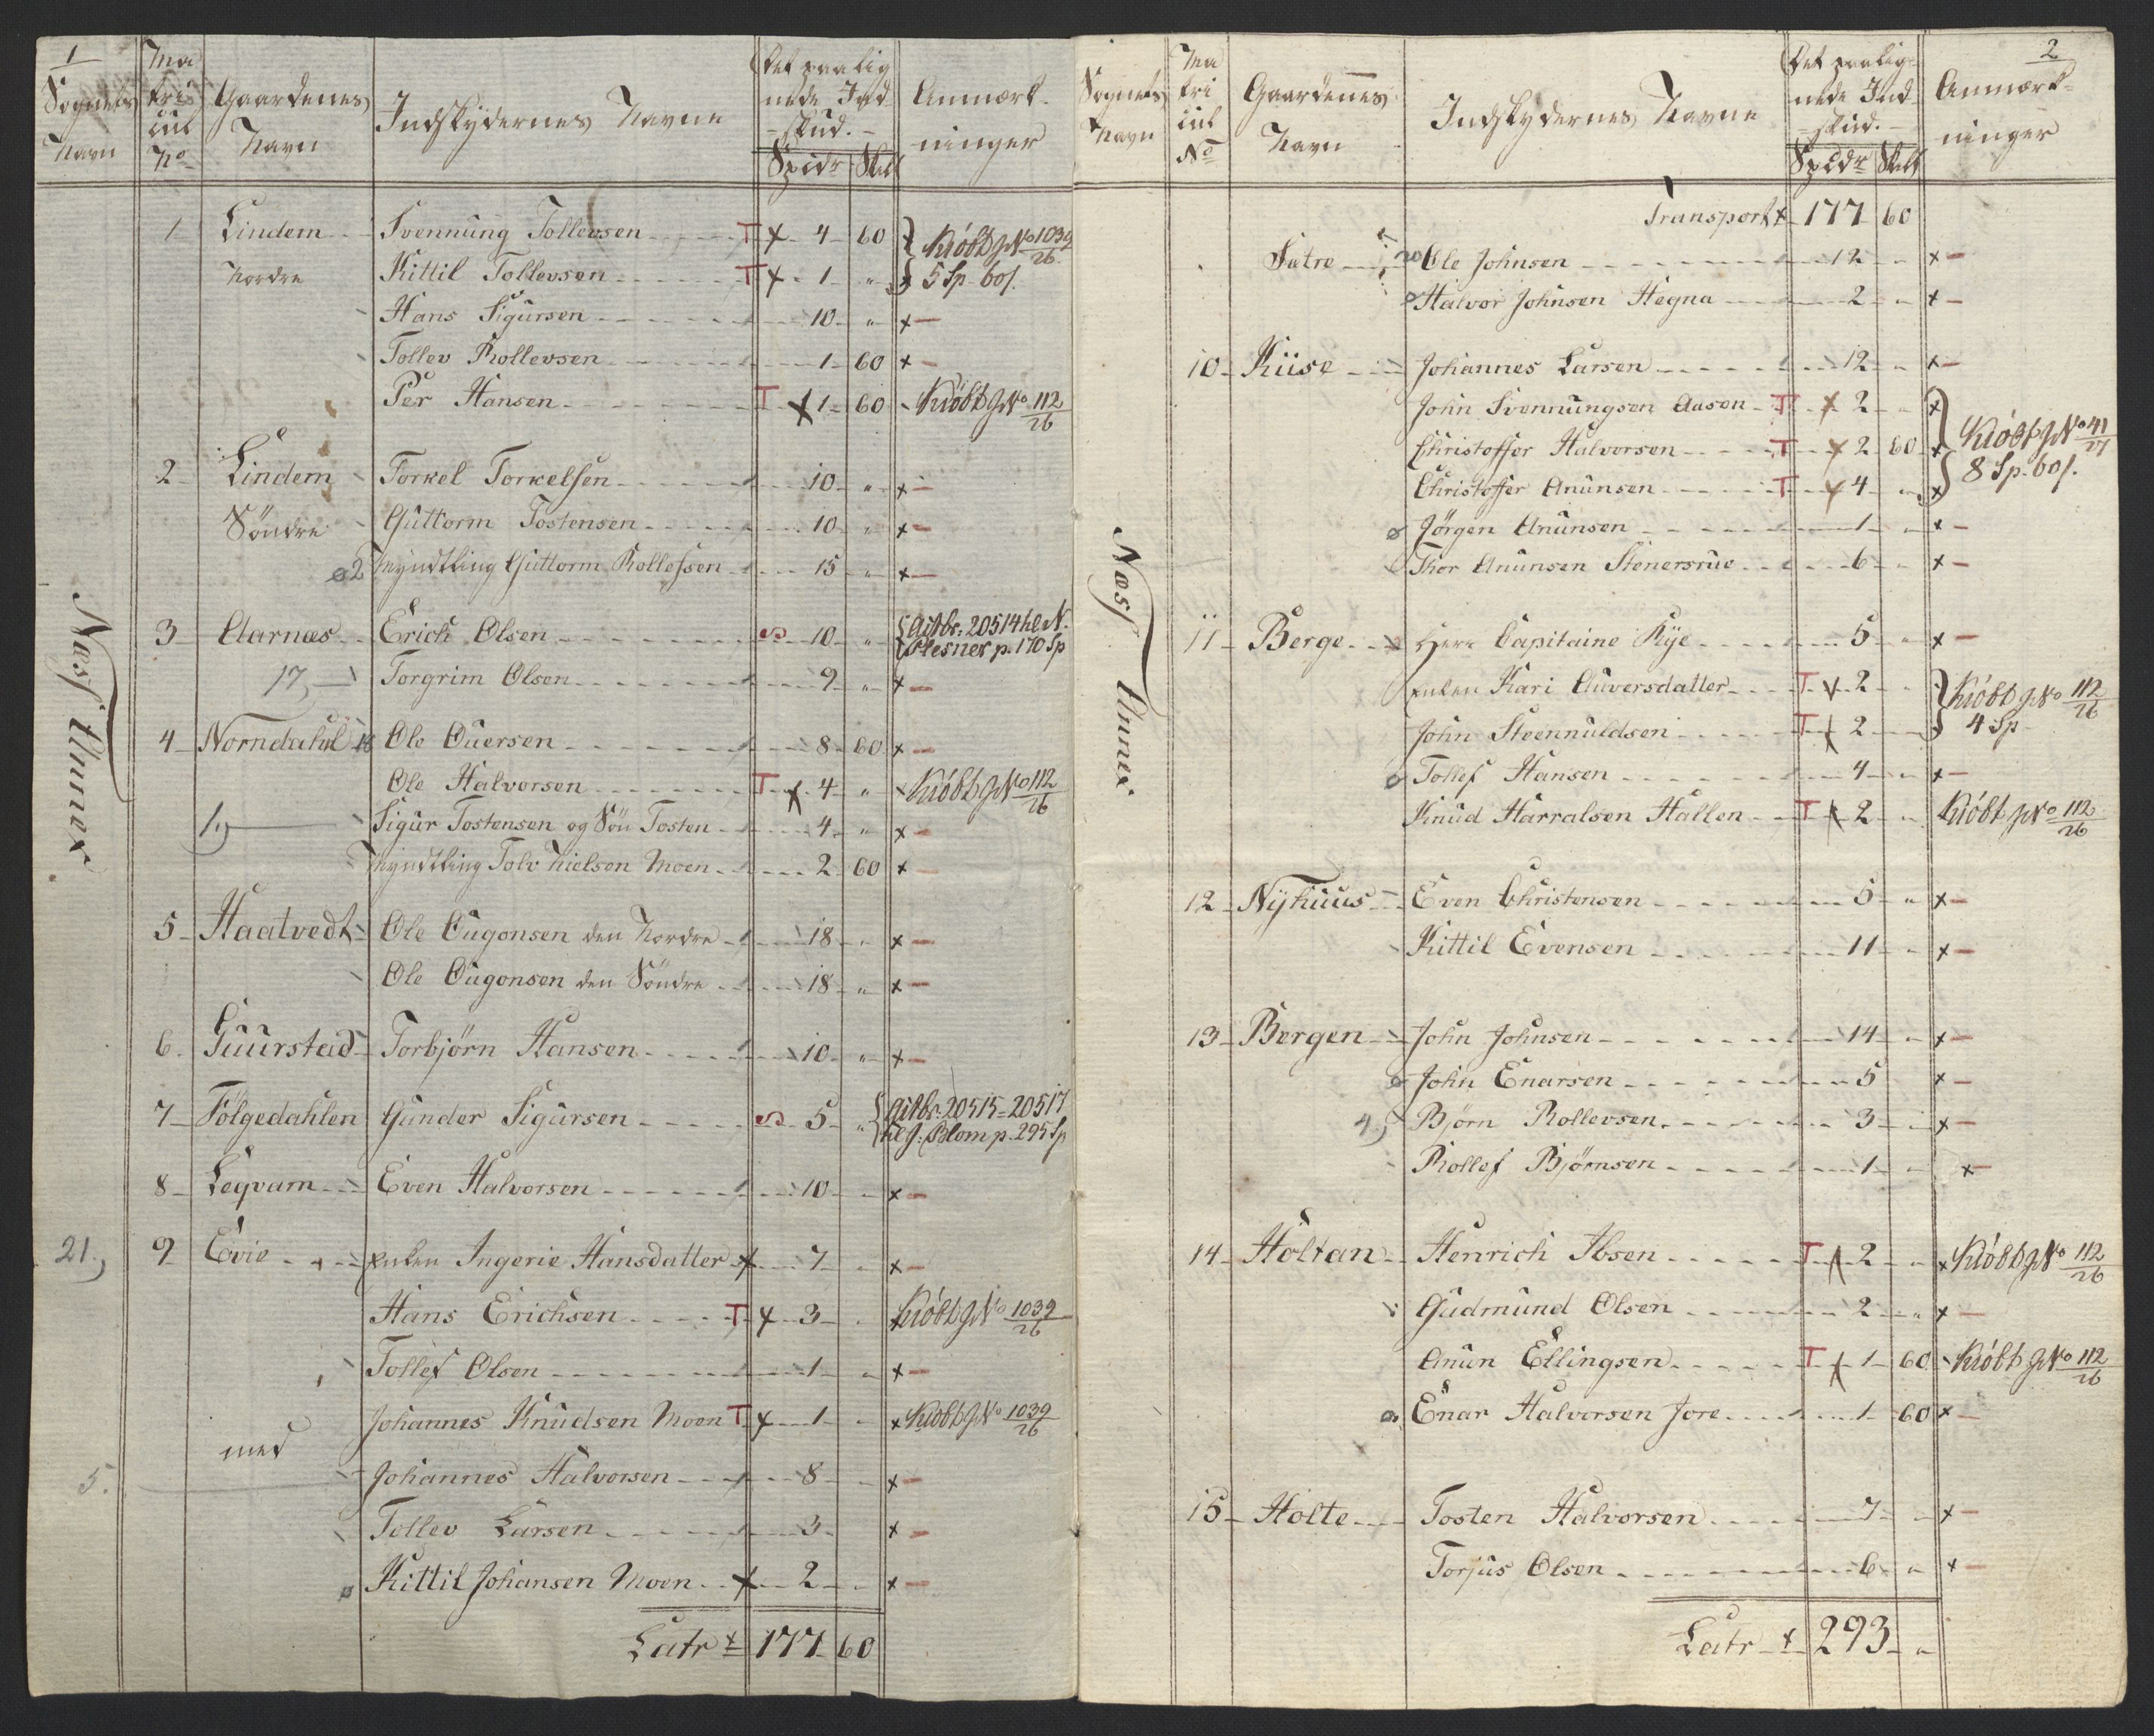 1
Sognets Navn | Matricul No | Gaardenes Navn | Indskydernes Navne | Det paalignede Indskud. Spcdr Skill | Anmærkninger
Næss Annex
1 Lindem Svennung Tollevsen T x 4 60 x Kiöbt JNo 1039/26
Nordre Kittil Tollevsen T x 1 " x 5 Sp 60 s.
Hans Sigursen 10 " x
Tollev Rollevsen 1 60 x
Per Hansen T x 1 60 Kiöbt JNo 112/26
2 Lindem Torkel Torkelsen 10 " x
Söndre Guttorm Tostensen 10 " x
ø 2 Myndtling Guttorm Rollefsen 15 " x
3 Aarnæs Erich Olsen S 10 " Actbr. 20514 hl N.
Plesner p. 170 Sp
17, Torgrim Olsen 9 " x
4 Norndahl 18 Ole Ouersen 8 60 x
Ole Halvorsen T x 4 " Kiöbt JNo 112/26
1, Sigur Tostensen og Sön Tosten 4 " x
Myndtling Tolv Nielsen Moen 2 60 x
5 Haatvedt Ole Ougonsen den Nordre 18 " x
Ole Ougonsen den Söndre 18 " x
6 Guurstad Torbjörn Hansen 10 " x
7 Fölgedahlen Gunder Sigursen S 5 " Actbr. 20515-20517
hl J. Blom p. 295 Sp
8 Legvam Even Halvorsen 10 x
21, 9 Evie Enken Ingerie Hansdatter x 7 x
Hans Erichsen T x 3 Kiöbt JNo 1039/26
Tollef Olsen 1 x
Johannes Knudsen Moen T x 1 x Kiöbt JNo 1039/26
med
5. Johannes Halvorsen 8 x
Tollev Larsen 3 x
ø Kittil Johansen Moen x 2 x
Latr 177 60
2
Sognets Navn | Matricul No | Gaardenes Navn | Indskydernes Navne | Det paalignede Indskud. Spcdr Skill | Anmærkninger
Næss Annex
Transport 177 60
Sætre Ole Johnsen 12 " x
ø Halvor Johnsen Hegna 2 " x
10 Kiise Johannes Larsen 12 " x
John Svennungsen Aasen T x 2 x
Christoffer Halvorsen T x 2 60 x Kiöbt JNo 41/27
Christoffer Anunsen T x 4 " x 8 Sp. 60 s.
ø Jörgen Anunsen 1 x
Thor Anunsen Stenersrue 6 x
11 Berge Herr Capitaine Rye 5 " x
Enken Kari Auversdatter T x 2 Kiöbt JNo 112/26
John Steennuldsen T x 2 4 Sp
ø Tollef Hansen 4 " x
Knud Harralsen Hallen T x 2 " Kiöbt JNo 112/26
12 Nyhuus Even Christensen 5 " x
Kittil Evensen 11 " x
13 Bergen John Johnsen 14 " x
ø John Enarsen 5 x
4, Björn Rollevsen 3 x
Rollef Björnsen 1 x
14 Holtan Henrich Ibsen T x 2 " x Kiöbt JNo 112/26
Gudmund Olsen 2 " x
Anun Ellingsen T x 1 60 Kiöbt JNo 112/26
ø Enar Halvorsen Jore 1 60 x
15 Holte Tosten Halvorsen 7 x
Torjus Olsen 6 " x
Latr 293 "